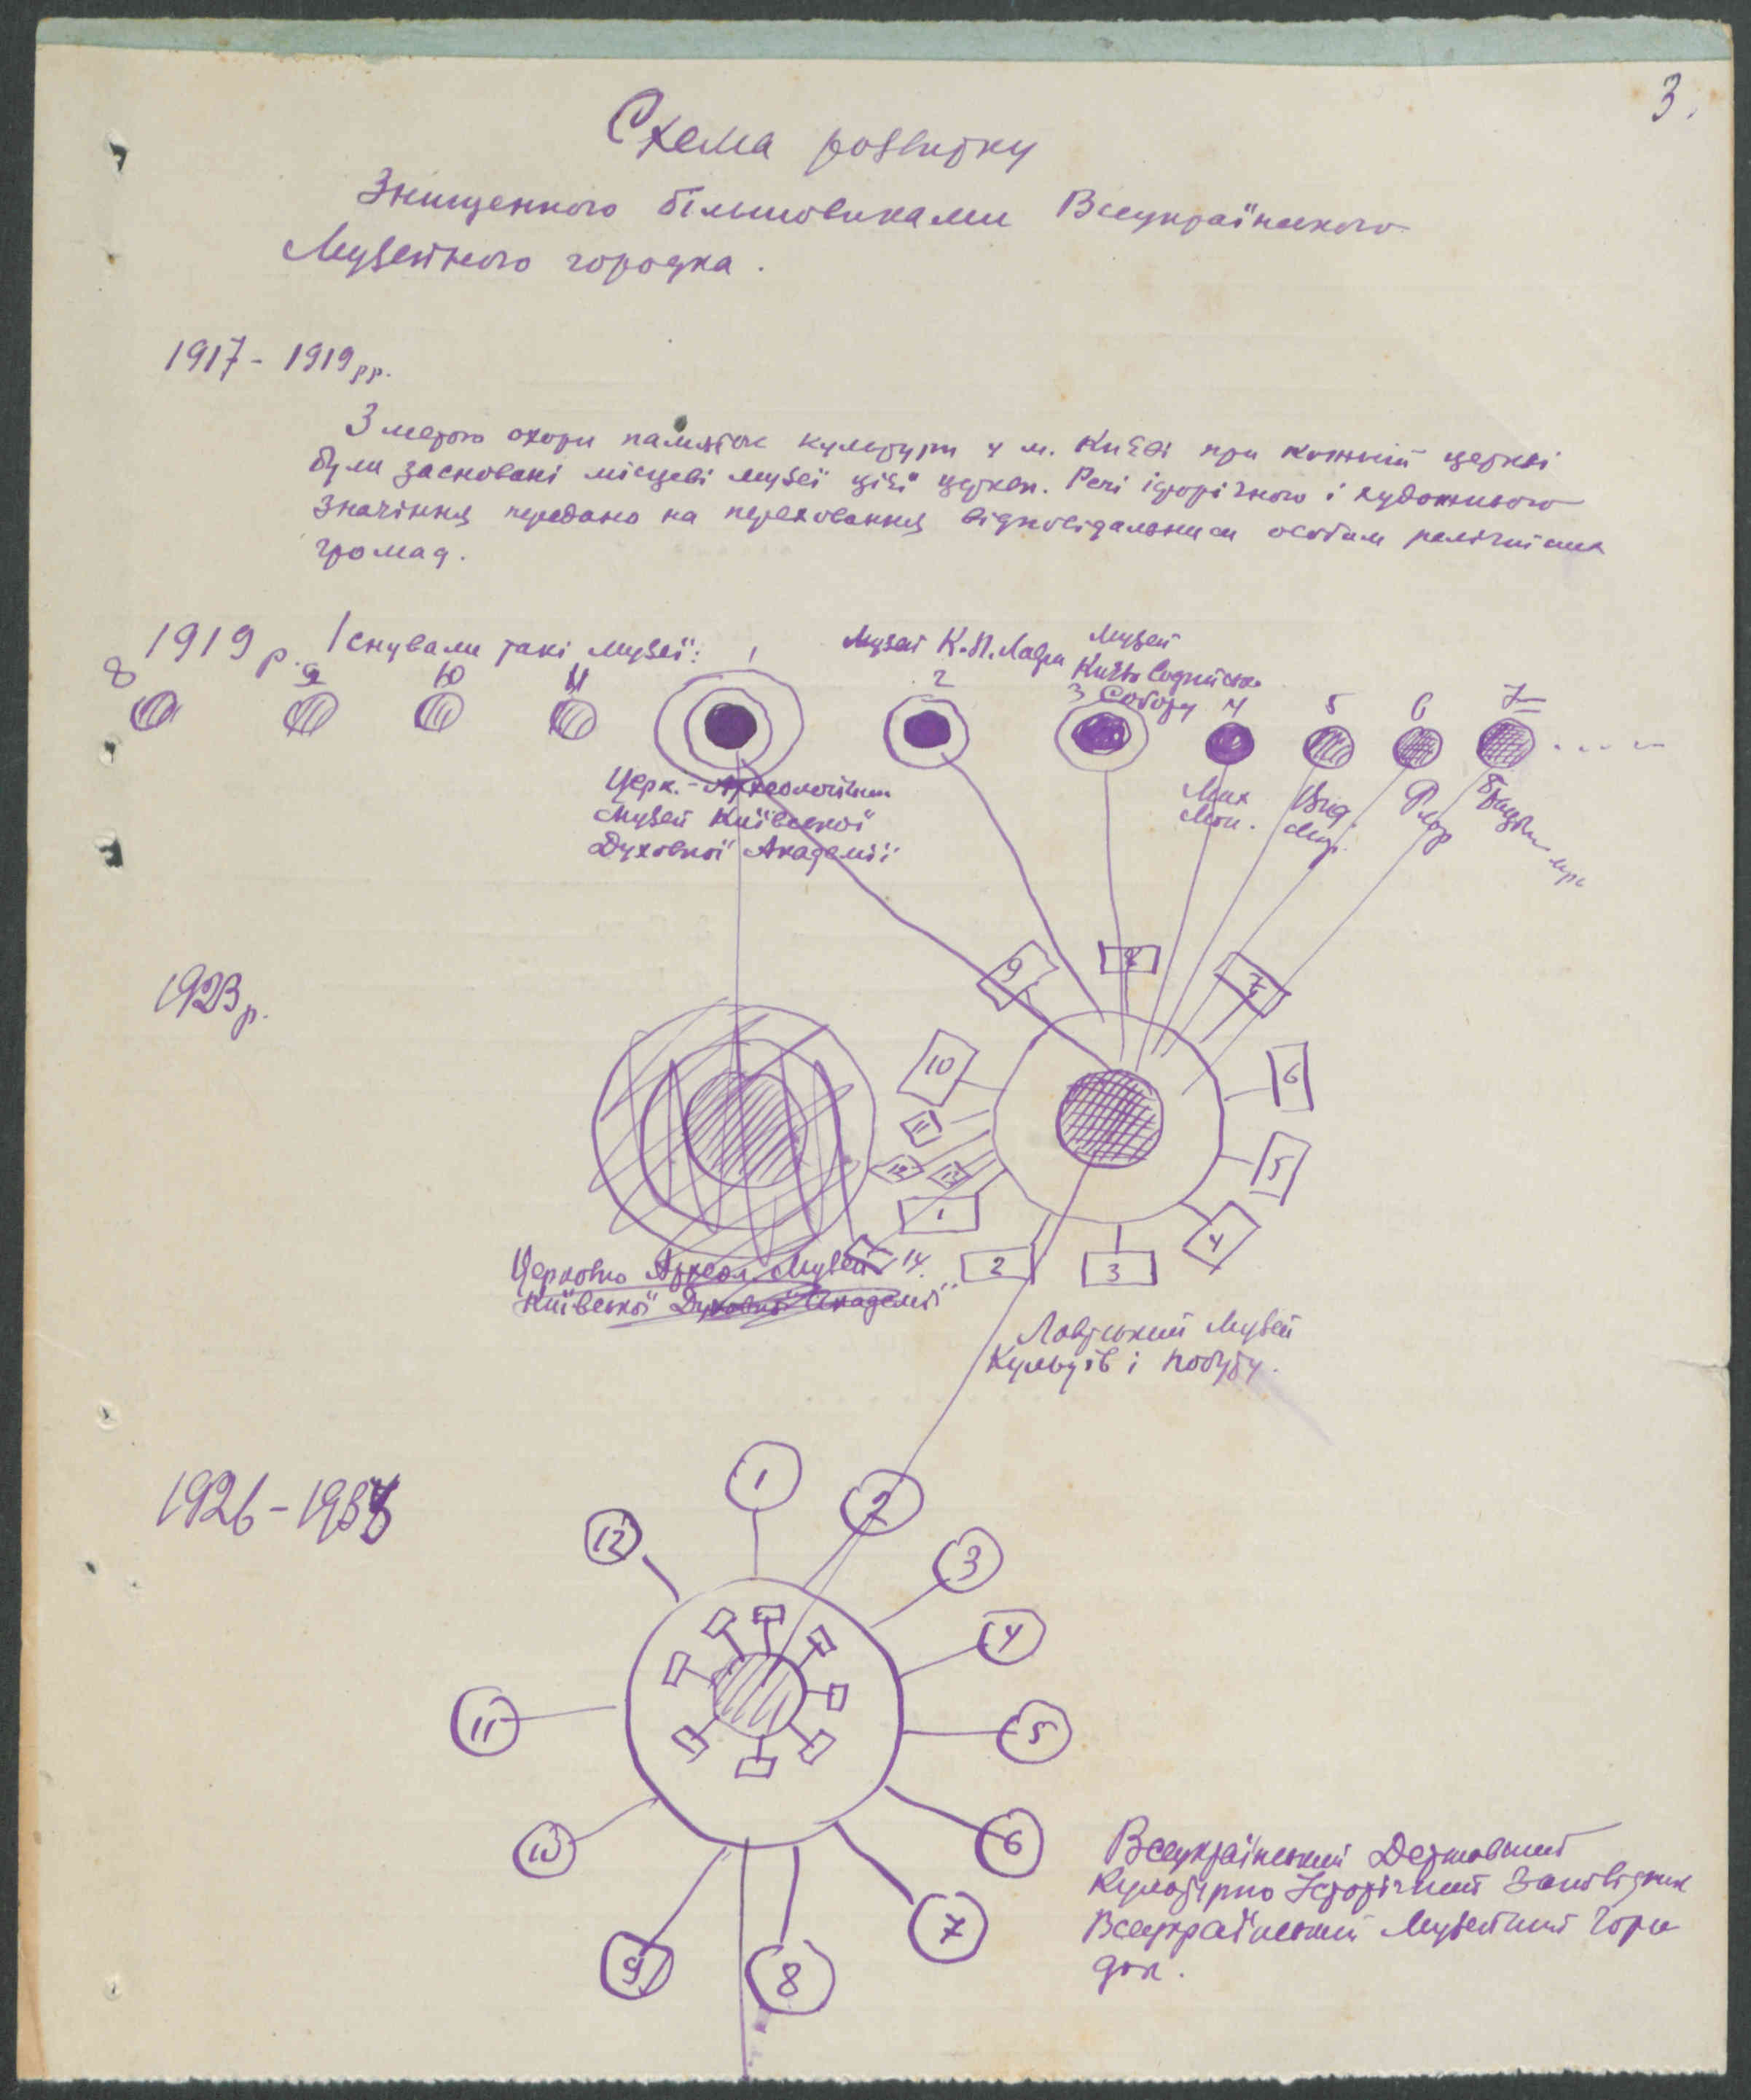 3.
Схема розвитку
Знищенного більшовиками Всеукраїнського
Музейного городка.
1917 - 1919 рр.
З метою охорони памяток культури у м. Київі при кожній церкві
були засновані місцеві музеї цієї церкви. Речі історічного і художнього
значіння передано на переховання відповідальним особам релігійних
громад.
1919 р. Існували такі музеї:
Музей К.П. Лаври
Музей
Київо Софийськ.
Собору
8 9 10 11 1 2 3 4 5 6 7
Церк.-Археологічний
Музей Київської
Духовної Академії
Мих
Мон.
Вид
Мон.
Флор
Братськ
1923 р.
9 8 7
10 6
11
12 13 5
1 4
14 2 3
Церковно Археол. Музей
Київської Духовної Академії
Лаврський Музей
Культів і побуту.
1926 - 193
1 2
12 3
4
11 5
10 6
7
9 8
Всеукраїнський Державний
Культурно Історічний Заповідник
Всеукраїнський Музейний Горо
док.